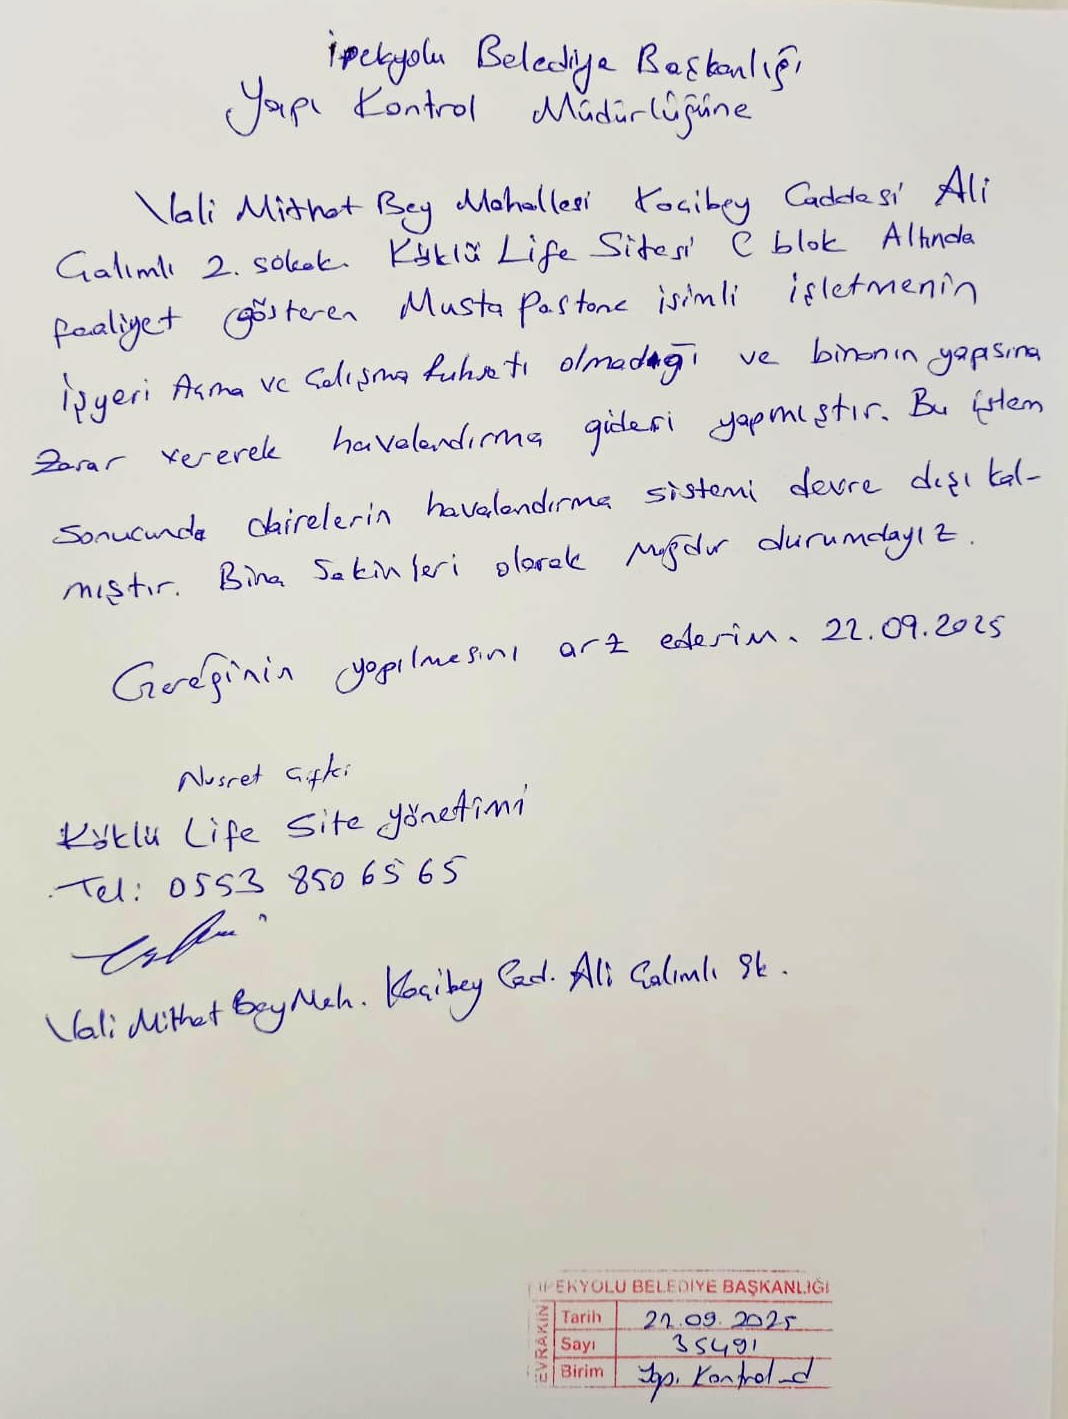 İpekyolu Belediye Başkanlığı
Yapı Kontrol Müdürlüğüne
Vali Mithat Bey Mahallesi Koçibey Caddesi Ali
Galımlı 2. sokak. Köklü Life Sitesi C blok Altında
faaliyet gösteren Musta Pastane isimli işletmenin
İşyeri Açma ve Çalışma Ruhsatı olmadığı ve binanın yapısına
Zarar vererek havalandırma gideri yapmıştır. Bu işlem
sonucunda dairelerin havalandırma sistemi devre dışı kal-
mıştır. Bina Sakinleri olarak mağdur durumdayız.
Gereğinin yapılmasını arz ederim. 22.09.2025
Nusret Çiftçi
Köklü Life Site Yönetimi
Tel: 0553 850 65 65
Vali Mithat Bey Mah. Koçibey Cad. Ali Galımlı Sk.
İPEKYOLU BELEDİYE BAŞKANLIĞI
EVRAKIN
Tarih 22.09.2025
Sayı 35491
Birim Yap. Kontrol